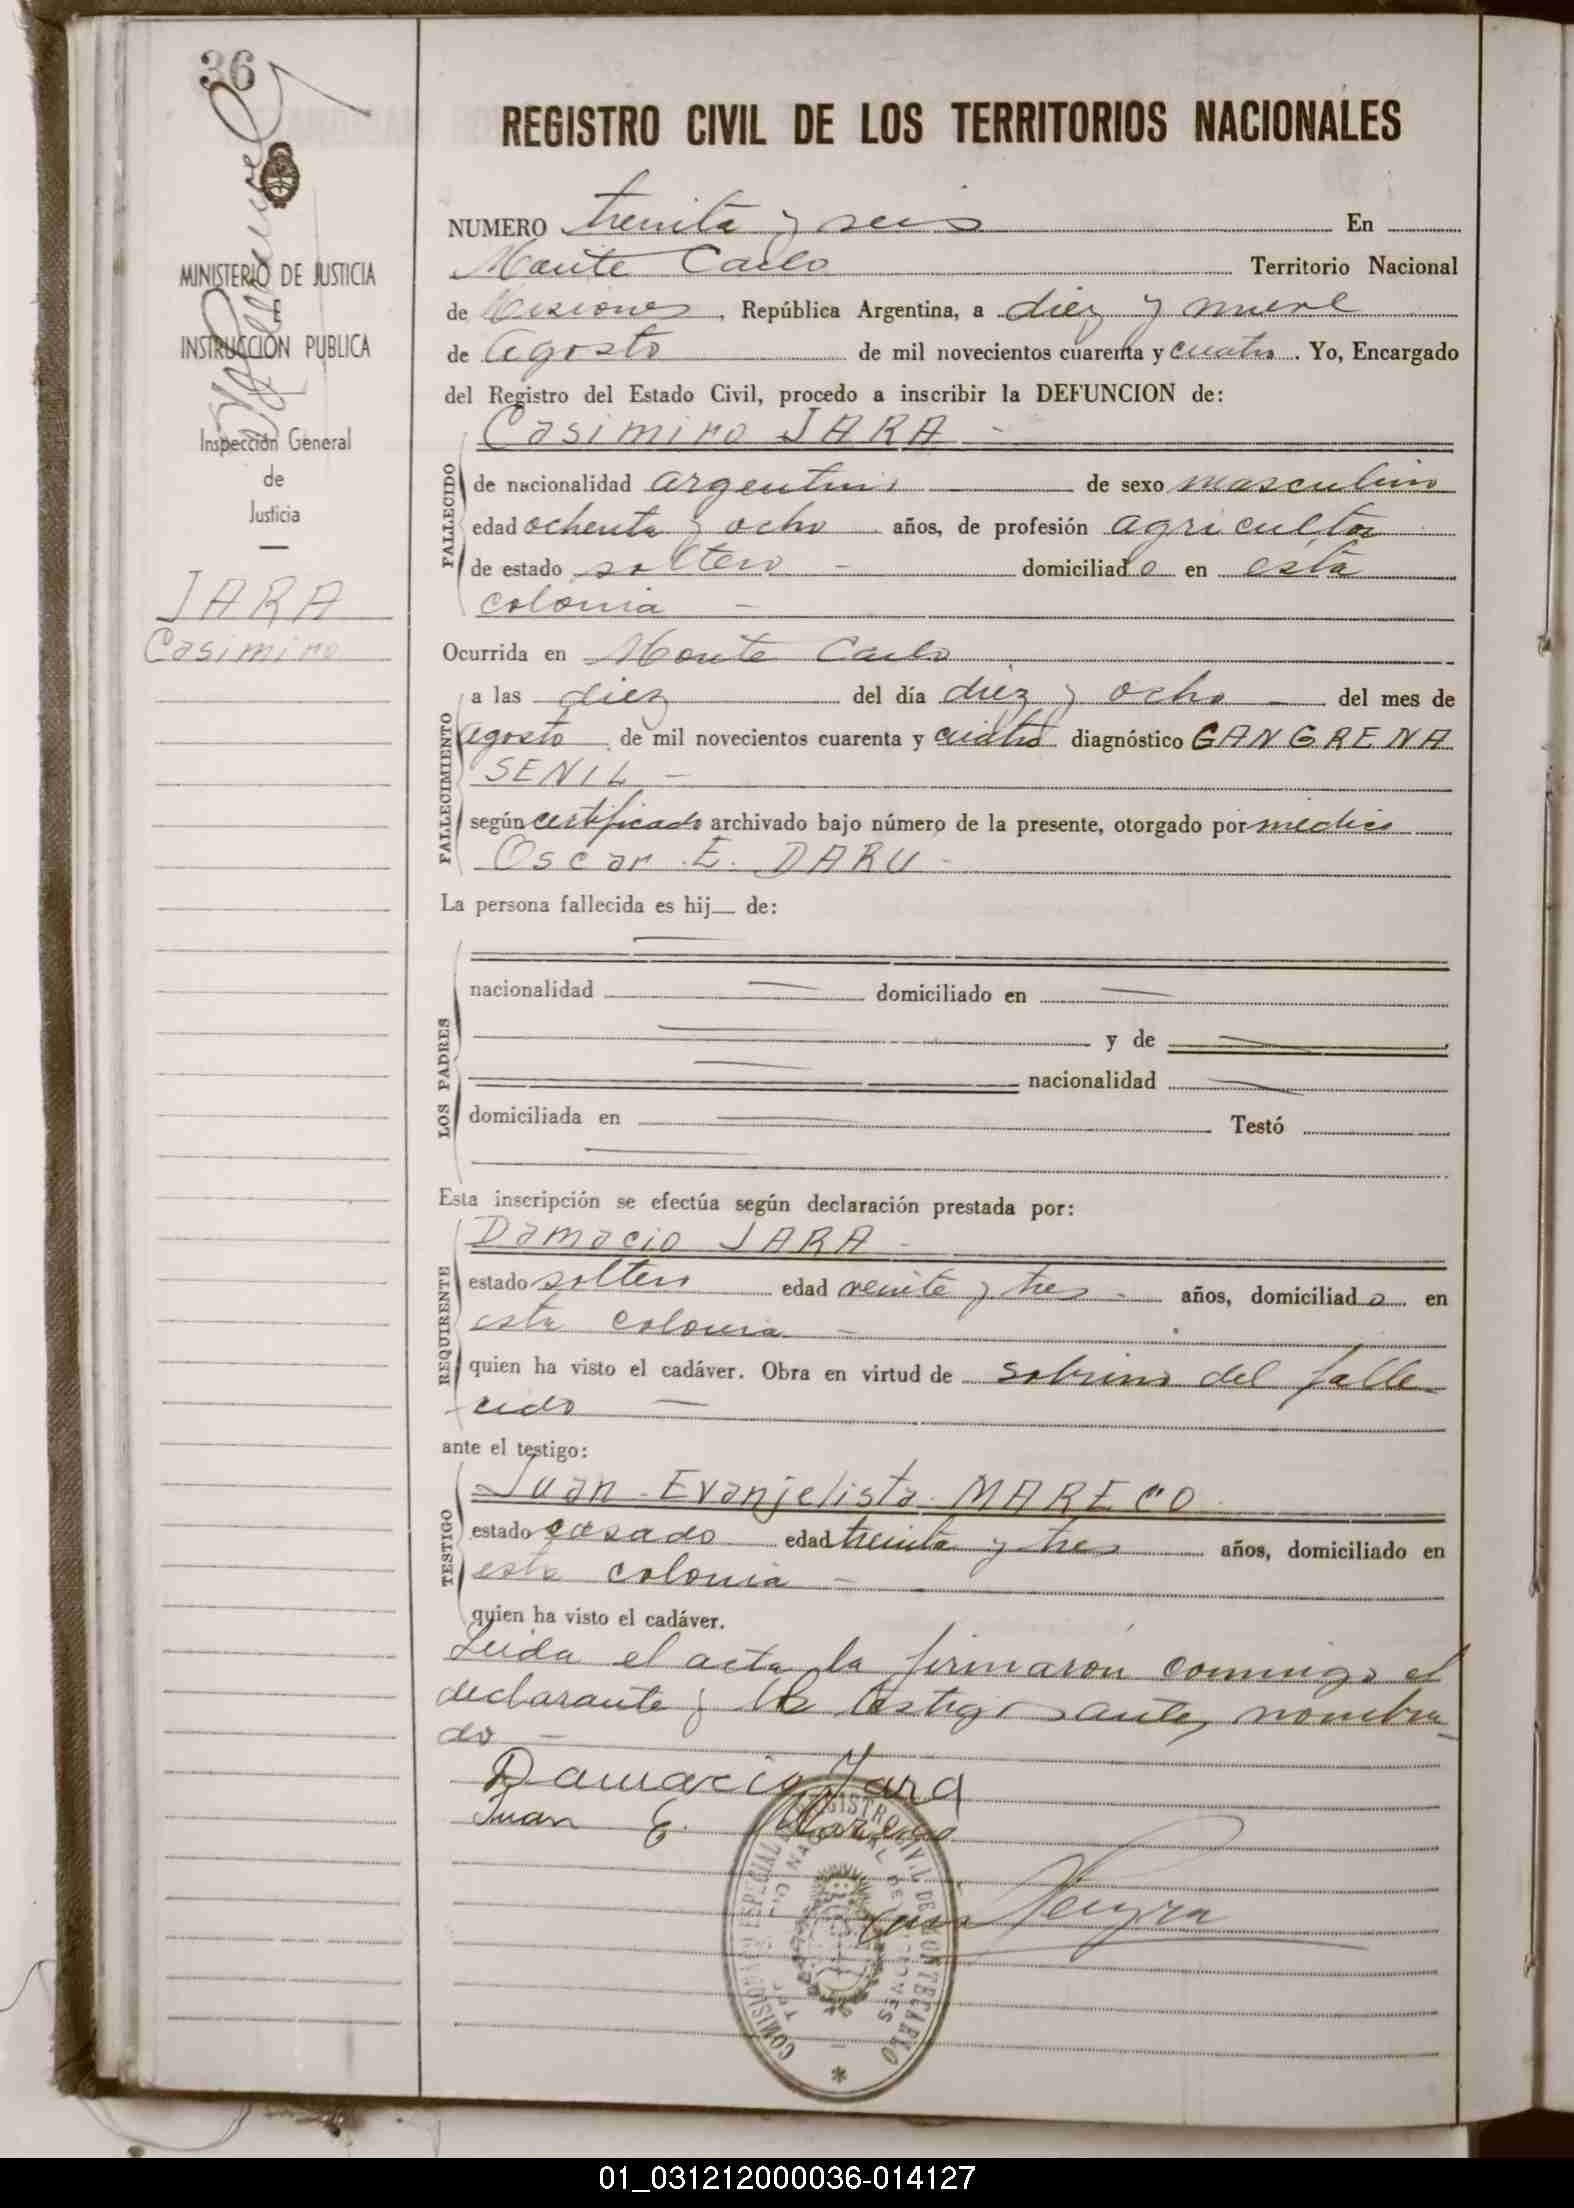 36
MINISTERIO DE JUSTICIA
E
INSTRUCCIÓN PUBLICA
Inspección General
de
Justicia
JARA
Casimiro
REGISTRO CIVIL DE LOS TERRITORIOS NACIONALES
NUMERO treinta y seis En
Monte Carlo Territorio Nacional
de Misiones, República Argentina, a diez y nueve
de agosto de mil novecientos cuarenta y cuatro. Yo, Encargado
del Registro del Estado Civil, procedo a inscribir la DEFUNCION de:
Casimiro JARA -
FALLECIDO
de nacionalidad argentino de sexo masculino
edad ochenta y ocho años, de profesión agricultor
de estado soltero - domiciliado en esta
colonia -
Ocurrida en Monte Carlo
FALLECIMIENTO
a las diez del día diez y ocho - del mes de
agosto de mil novecientos cuarenta y cuatro diagnóstico GANGRENA
SENIL -
según certificado archivado bajo número de la presente, otorgado por médico
Oscar E. DARU -
La persona fallecida es hij__ de:
LOS PADRES
nacionalidad — domiciliado en —
— y de —
— nacionalidad —
domiciliada en — Testó
—
Esta inscripción se efectúa según declaración prestada por:
REQUIRENTE
Damacio JARA -
estado soltero edad veinte y tres - años, domiciliado en
esta colonia -
quien ha visto el cadáver. Obra en virtud de sobrino del falle-
cido —
ante el testigo:
TESTIGO
Juan Evanjelista MARECO
estado casado edad treinta y tres años, domiciliado en
esta colonia -
quien ha visto el cadáver.
Leida el acta la firmaron conmigo el
declarante y testigo antes nombra-
do —
Damacio Jara
Juan E. Mareco
COMISION ESPECIAL REGISTRO CIVIL DE MONTECARLO
NACIONAL DE MISIONES
*
01_031212000036-014127